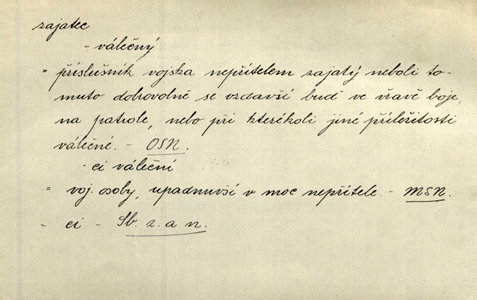 zajatec
- válečný
= příslušník vojska nepřítelem zajatý neboli to-
muto dobrovolně se vzdavší buď ve vřavě boje,
na patrole, nebo při kterékoli jiné příležitosti
válečné. - OSN.
- ci váleční
= voj. osoby, upadnuvší v moc nepřítele. - MSN.
- ci - Sb. z. a n.